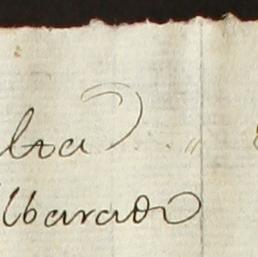 lta
lbarado